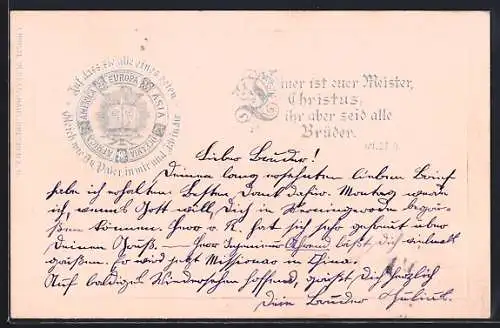 Auf dass sie alle eines seien
gleich wie du Vater in mir und ich in dir
AMERICA EUROPA ASIA
AFRICA OCEANIA
Einer ist euer Meister,
Christus,
ihr aber seid alle
Brüder.
Lieber Bruder!
Deinen lang ersehnten lieben Brief
habe ich erhalten. Besten Dank dafür. Montag werde
ich, wenns Gott will, Dich in Wernigerode begrü-
ßen können. Herr v. R. hat sich sehr gefreut über
Deinen Gruß. — Herr läßt Dich vielmals
grüßen. Er wird jetzt Missionar in China.
Auf baldiges Wiedersehen hoffend, grüßt Dich herzlich
Dein Bruder Julius.